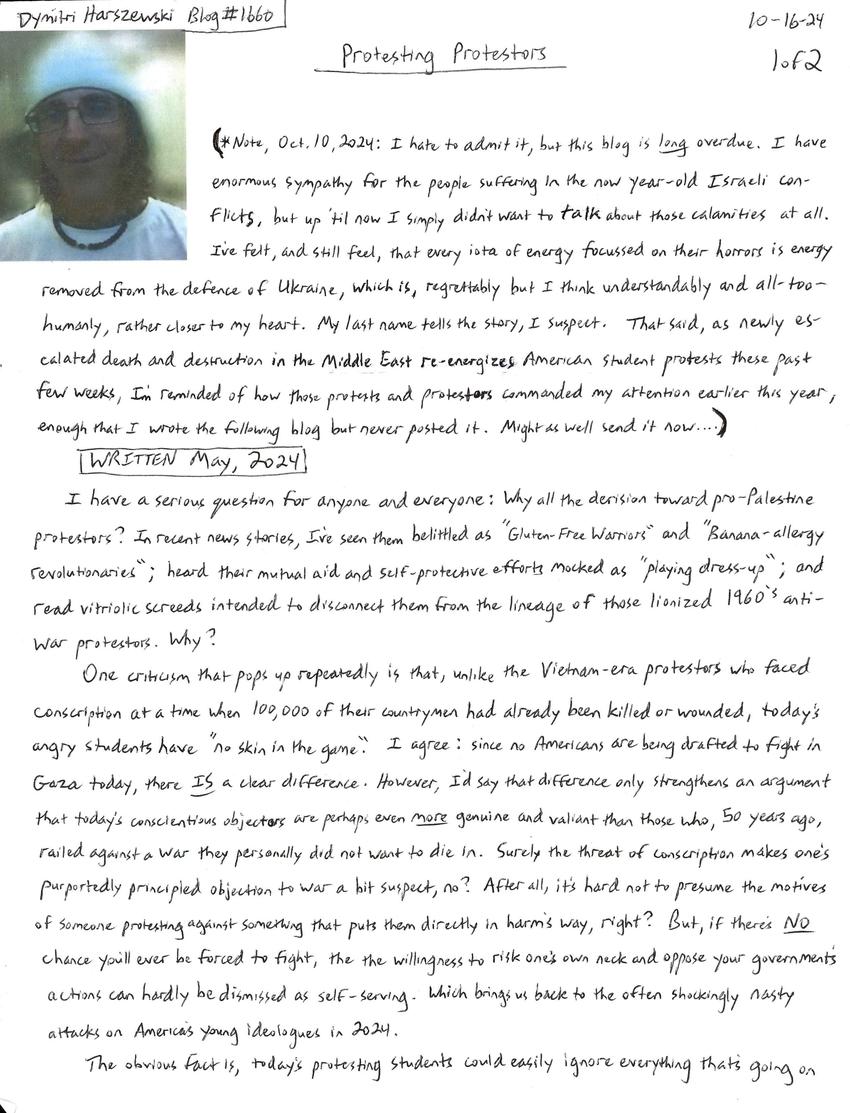 Dymitri Harszewski Blog #1660
10-16-24
Protesting Protestors
1 of 2
(*Note, Oct. 10, 2024: I hate to admit it, but this blog is long overdue. I have
enormous sympathy for the people suffering in the now year-old Israeli con-
flicts, but up 'til now I simply didn't want to talk about those calamities at all.
I've felt, and still feel, that every iota of energy focussed on their horrors is energy
removed from the defence of Ukraine, which is, regrettably but I think understandably and all-too-
humanly, rather closer to my heart. My last name tells the story, I suspect. That said, as newly es-
calated death and destruction in the Middle East re-energizes American student protests these past
few weeks, I'm reminded of how those protests and protestors commanded my attention earlier this year,
enough that I wrote the following blog but never posted it. Might as well send it now....)
WRITTEN May, 2024
I have a serious question for anyone and everyone: Why all the derision toward pro-Palestine
protestors? In recent news stories, I've seen them belittled as "Gluten-Free Warriors" and "Banana-allergy
revolutionaries"; heard their mutual aid and self-protective efforts mocked as "playing dress-up"; and
read vitriolic screeds intended to disconnect them from the lineage of those lionized 1960's anti-
war protestors. Why?
One criticism that pops up repeatedly is that, unlike the Vietnam-era protestors who faced
conscription at a time when 100,000 of their countrymen had already been killed or wounded, today's
angry students have "no skin in the game." I agree: since no Americans are being drafted to fight in
Gaza today, there IS a clear difference. However, I'd say that difference only strengthens an argument
that today's conscientious objectors are perhaps even more genuine and valiant than those who, 50 years ago,
railed against a war they personally did not want to die in. Surely the threat of conscription makes one's
purportedly principled objection to war a bit suspect, no? After all, it's hard not to presume the motives
of someone protesting against something that puts them directly in harm's way, right? But, if there's NO
chance you'll ever be forced to fight, the the willingness to risk one's own neck and oppose your government's
actions can hardly be dismissed as self-serving. Which brings us back to the often shockingly nasty
attacks on America's young ideologues in 2024.
The obvious fact is, today's protesting students could easily ignore everything that's going on